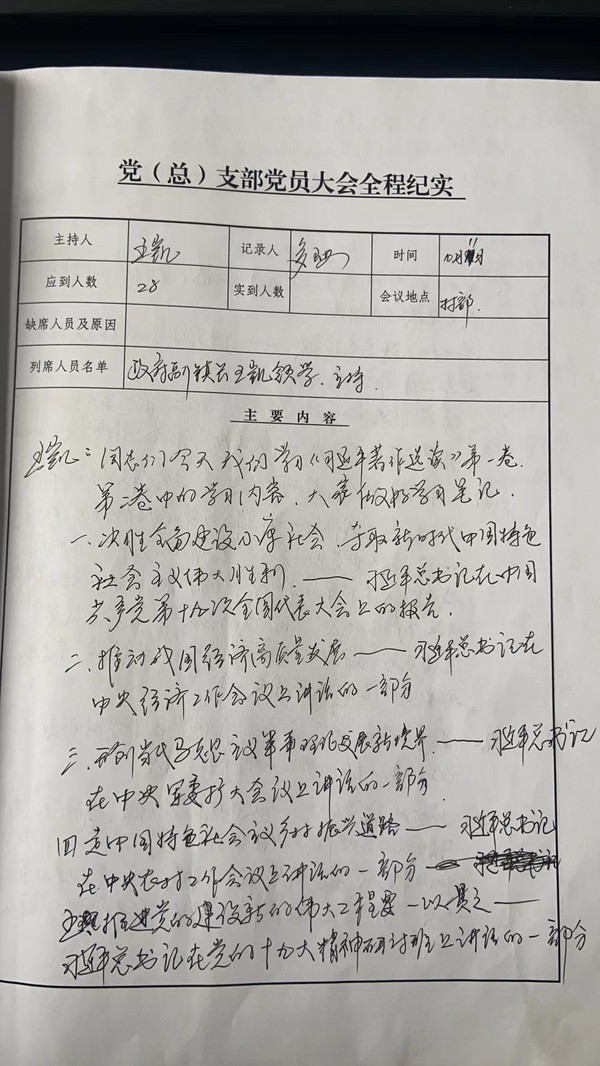 党（总）支部党员大会全程纪实
主持人 王凯 记录人 时间
应到人数 28 实到人数 会议地点 村部.
缺席人员及原因
列席人员名单 政府副镇长王凯领学、主持.
主要内容
王凯：同志们今天我们学习《习近平著作选读》第一卷.
第二卷中的学习内容，大家做好学习笔记.
一、决胜全面建设小康社会，夺取新时代中国特色
社会主义伟大胜利.——习近平总书记在中国
共产党第十九次全国代表大会上的报告.
二、推动我国经济高质量发展——习近平总书记在
中央经济工作会议上讲话的一部分
三、开创当代马思主义军事理论发展新境界.——习近平总书记
在中央军委扩大会议上讲话的一部分.
四走中国特色社会主义乡村振兴道路——习近平总书记
在中央农村工作会议上讲话的一部分
推进党的建设新的伟大工程要一以贯之——
习近平总书记在党的十九大精神研讨班上讲话的一部分